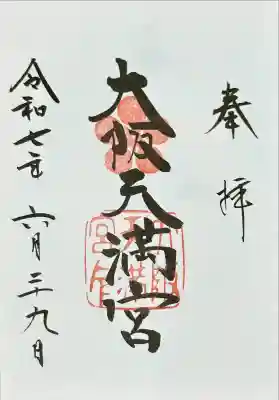 奉拝
大阪天満宮
令和七年 六月二十九日